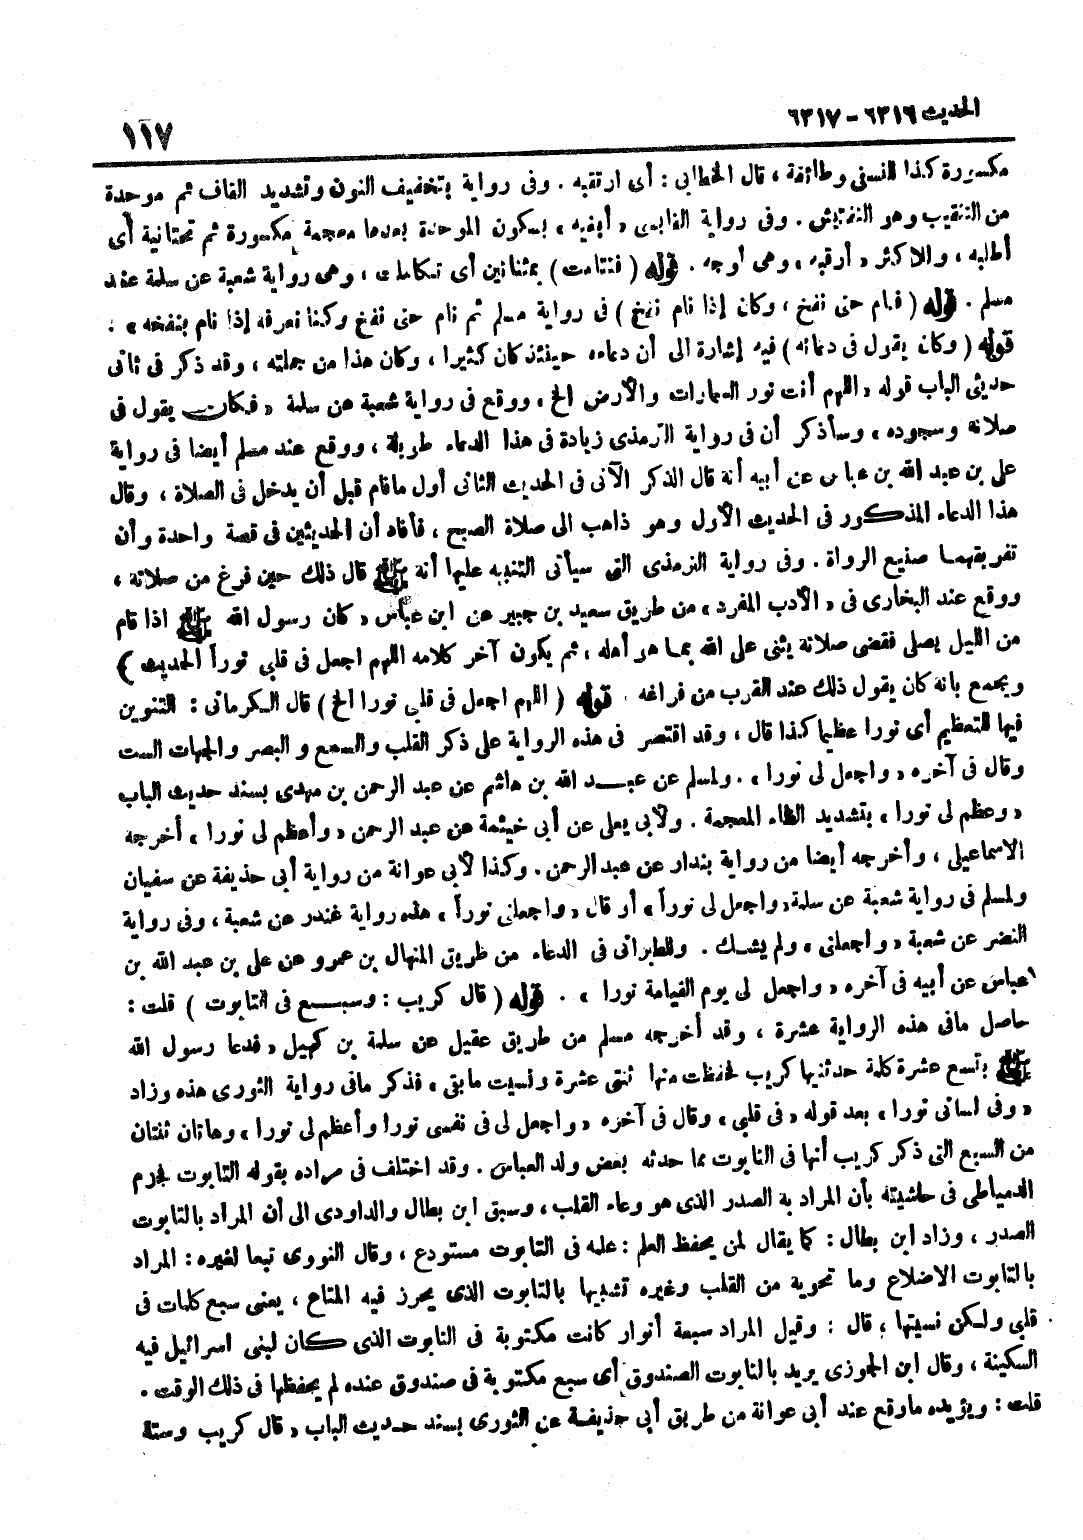 الحديث ٦٣١٦ - ٦٣١٧
١١٧
مكسورة كذا للنسفي وطائفة ، قال الخطابي : أى ارتقبه . وفى رواية بتخفيف النون وتشديد القاف ثم موحدة
من التنقيب وهو التفتيش . وفى رواية القابسى « أبغيه » بسكون الموحدة بعدها معجمة مكسورة ثم تحتانية أى
أطلبه ، والاكثر « أرقبه » وهى أوجه . قوله ( فتتامت ) بمثناتين أى تكاملت ، وهى رواية شعبة عن سلمة عند
مسلم . قوله ( فنام حتى نفخ ، وكان إذا نام نفخ ) فى رواية مسلم ثم نام حتى نفخ وكنا نعرفه إذا نام بنفخه » .
قوله ( وكان يقول فى دعائه ) فيه إشارة الى أن دعاءه حينئذ كان كثيرا ، وكان هذا من جملته ، وقد ذكر فى ثانى
حديثى الباب قوله « اللهم أنت نور السماوات والأرض الخ ، ووقع فى رواية شعبة عن سلمة « فكان يقول فى
صلاته وسجوده » وسأذكر أن فى رواية الترمذى زيادة فى هذا الدعاء طويلة ، ووقع عند مسلم أيضا فى رواية
على بن عبد الله بن عباس عن أبيه أنه قال الذكر الآتى فى الحديث الثانى أول ما قام قبل أن يدخل فى الصلاة ، وقال
هذا الدعاء المذكور فى الحديث الأول وهو ذاهب الى صلاة الصبح ، فأفاد أن الحديثين فى قصة واحدة وأن
تفريقهما صنيع الرواة . وفى رواية الترمذى التى سيأتى التنبيه عليها أنه ﷺ قال ذلك حين فرغ من صلاته ،
ووقع عند البخارى فى « الأدب المفرد » من طريق سعيد بن جبير عن ابن عباس « كان رسول الله ﷺ اذا قام
من الليل يصلى فقضى صلاته يثنى على الله بما هو أهله ، ثم يكون آخر كلامه اللهم اجعل فى قلبى نوراً الحديث )
ويجمع بانه كان يقول ذلك عند القرب من فراغه . قوله ( اللهم اجعل فى قلبى نورا الخ ) قال الكرمانى : التنوين
فيها للتعظيم أى نورا عظيما كذا قال ، وقد اقتصر فى هذه الرواية على ذكر القلب والسمع و البصر والجهات الست
وقال فى آخره « واجعل لى نورا » . ولمسلم عن عبد الله بن هاشم عن عبد الرحمن بن مهدى بسند حديث الباب
« وعظم لى نورا » بتشديد الظاء المعجمة . ولأبى يعلى عن أبى خيثمة عن عبد الرحمن « وأعظم لى نورا » أخرجه
الاسماعيلى ، وأخرجه أيضا من رواية بندار عن عبد الرحمن . وكذا لأبى عوانة من رواية أبى حذيفة عن سفيان
ولمسلم فى رواية شعبة عن سلمة « واجعل لى نوراً » أو قال « واجعلنى نوراً » هذه رواية غندر عن شعبة ، وفى رواية
النضر عن شعبة « واجعلنى » ولم يشك . وللطبرانى فى الدعاء من طريق المنهال بن عمرو عن على بن عبد الله بن
عباس عن أبيه فى آخره « واجعل لى يوم القيامة نورا » . قوله ( قال كريب : وسبع فى التابوت ) قلت :
حاصل مافى هذه الرواية عشرة ، وقد أخرجه مسلم من طريق عقيل عن سلمة بن كهيل « فدعا رسول الله
ﷺ بتسع عشرة كلمة حدثنيها كريب فحفظت منها ثنتى عشرة ونسيت ما بقى » فذكر مافى رواية الثورى هذه وزاد
« وفى لسانى نورا » بعد قوله « فى قلبى » وقال فى آخره « واجعل لى فى نفسى نورا وأعظم لى نورا » وهاتان ثنتان
من السبع التى ذكر كريب أنها فى التابوت مما حدثه بعض ولد العباس . وقد اختلف فى مراده بقوله التابوت فجزم
الدمياطى فى حاشيته بأن المراد به الصدر الذى هو وعاء القلب ، وسبق ابن بطال والداودى الى أن المراد بالتابوت
الصدر ، وزاد ابن بطال : كما يقال لمن يحفظ العلم : علمه فى التابوت مستودع ، وقال النووى تبعا لغيره : المراد
بالتابوت الاضلاع وما تحويه من القلب وغيره تشبيها بالتابوت الذى يحرز فيه المتاع ، يعنى سبع كلمات فى
قلبى ولكن نسيتها ، قال : وقيل المراد سبعة أنوار كانت مكتوبة فى التابوت الذى كان لبنى اسرائيل فيه
السكينة ، وقال ابن الجوزى يريد بالتابوت الصندوق أى سبع مكتوبة فى صندوق عنده لم يحفظها فى ذلك الوقت .
قلت : ويؤيده ماوقع عند أبى عوانة من طريق أبى حذيفة عن الثورى بسند حديث الباب « قال كريب وستة